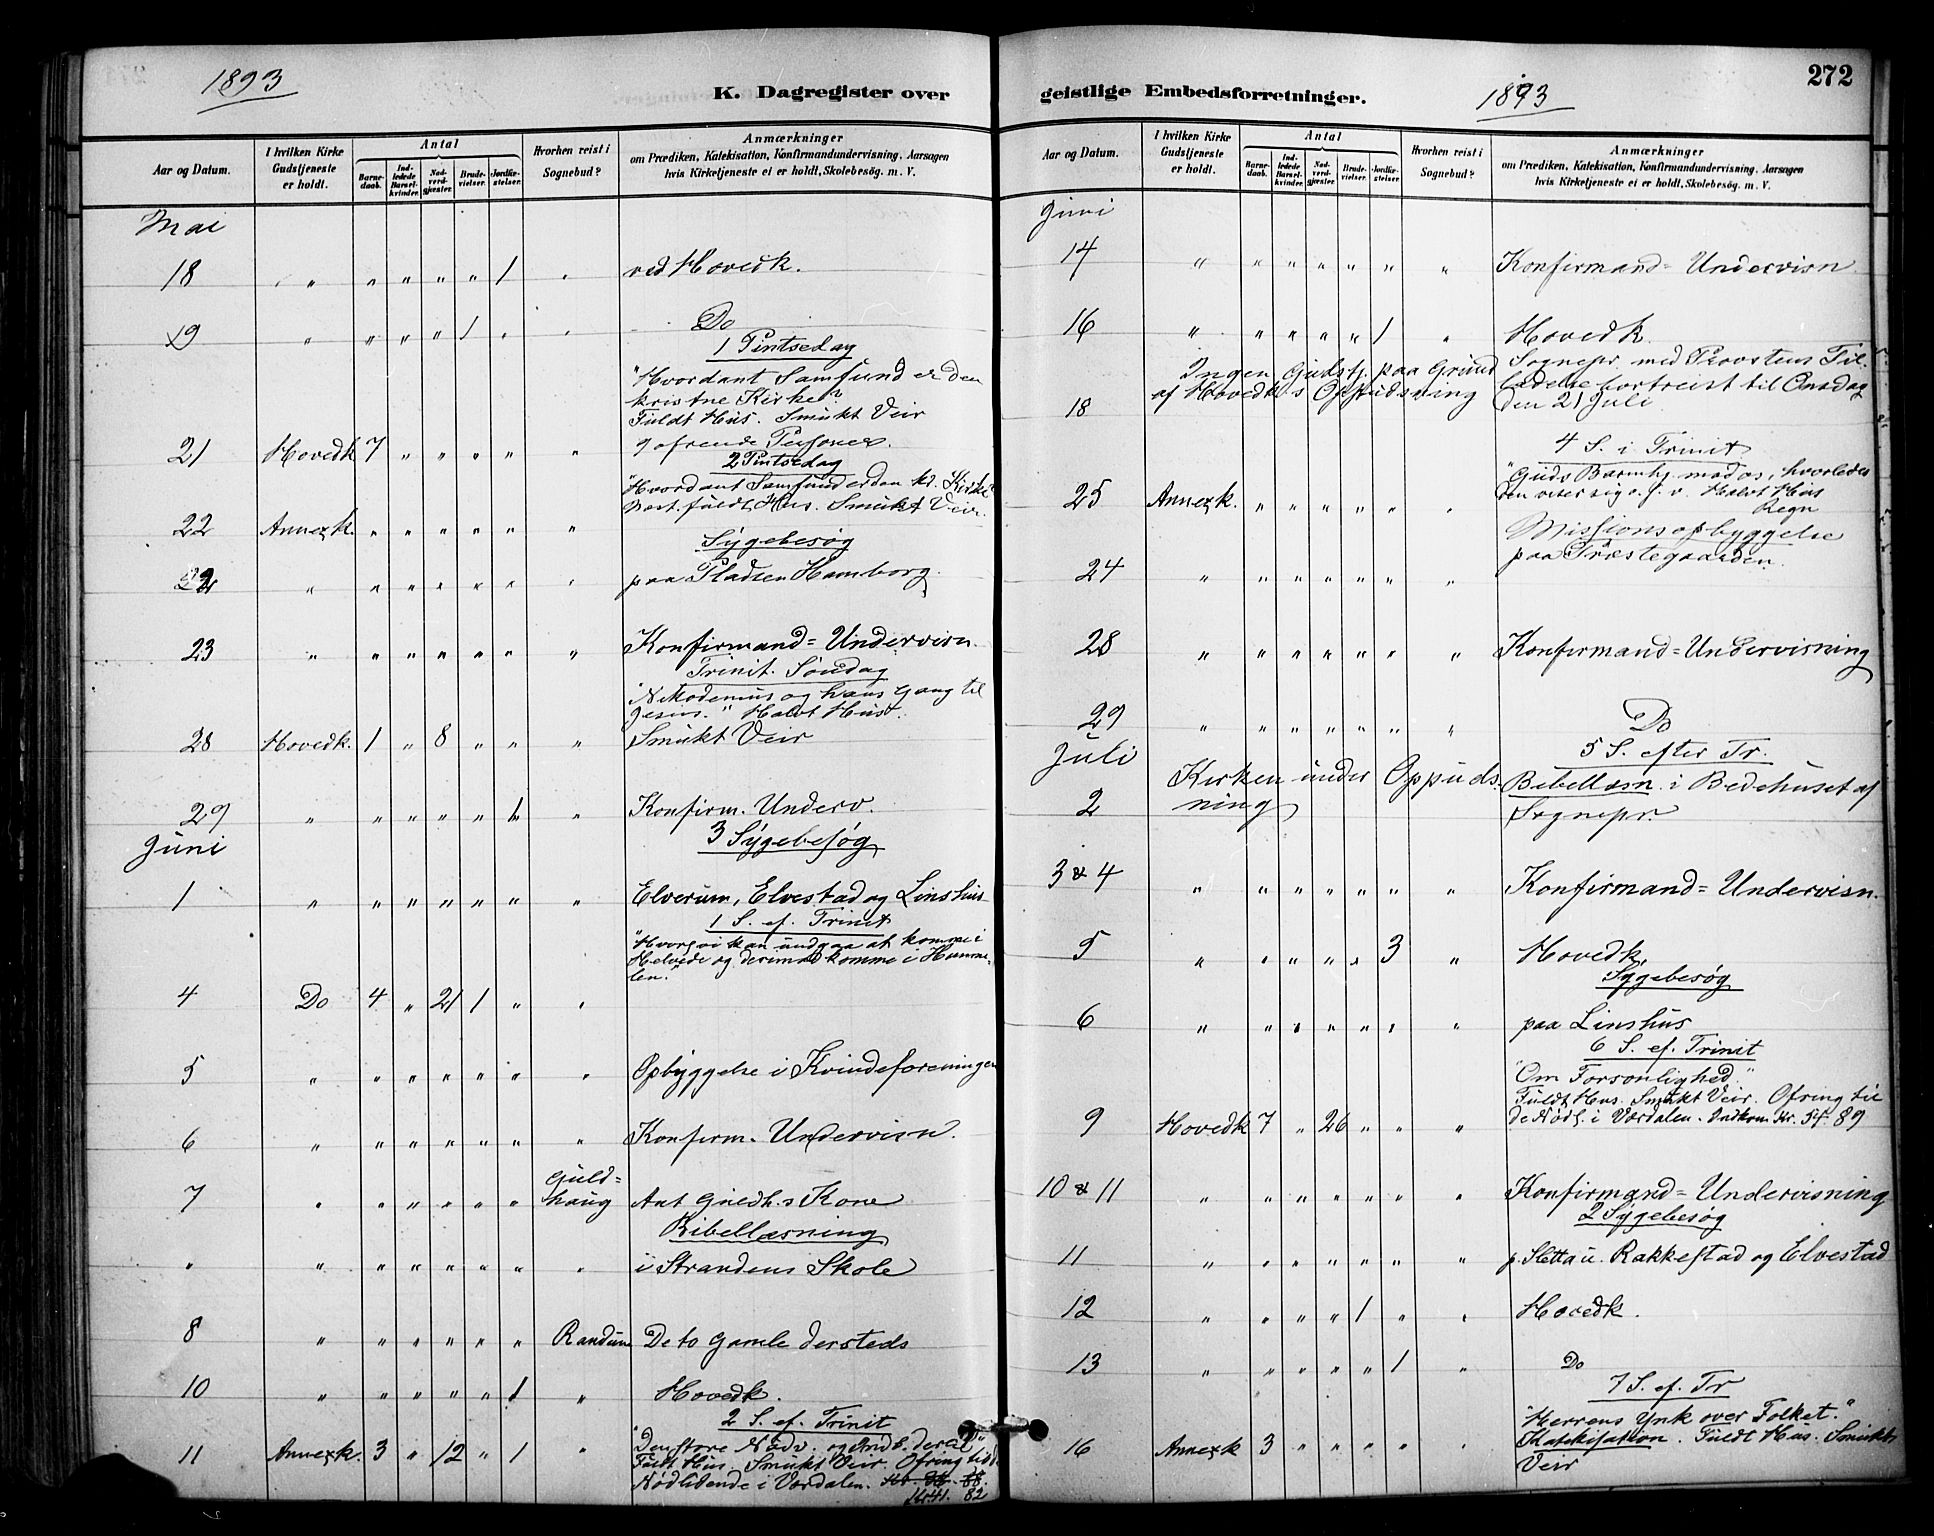 1893
K. Dagregister over
Aar og Datum. I hvilken Kirke Gudstjeneste er holdt. Antal Barnedaab. Indledede Barselkvinder. Nadverdgjæster. Brudevielser. Jordfæstelser. Hvorhen reist i Sognebud? Anmærkninger om Prædiken, Katekisation, Konfirmandundervisning, Aarsagen hvis Kirketjeneste ei er holdt, Skolebesøg. m. V.
Mai
18 " " " " " 1 " ved Hovedk.
19 " " " " 1 " " Do
1 Pintsedag
"Hvordant Samfund er den
kristne Kirke?
Fuldt Hus. Smukt Veir
21 Hovedk 7 " " " " " 9 ofrende Personer.
2 Pintsedag
"Hvordant Samfund er den kr. Kirke
22 Annexk. " " " " " " Næst. fuldt Hus. Smukt Veir.
Sygebesøg
22 " " " " " " " paa Pladsen Hamborg.
23 " " " " " " " Konfirmand=Undervisn.
Trinit. Søndag
"Nikodemus og hans Gang til
Jesus." Halvt Hus.
28 Hovedk. 1 " 8 " " " Smukt Veir
29 " " " " " 1 " Konfirm. Underv.
Juni
3 Sygebesøg
1 " " " " " " " Elverum, Elvestad og Linshus
1 S. ef. Trinit
"Hvorl. vi kan undgaa at komme i
Helvede og derimod komme i Himme-
len."
4 Do 4 " 21 1 " "
5 " " " " " " " Opbyggelse i Kvindeforeningen
6 " " " " " " " Konfirm. Undervisn.
7 " " " " " " Guld=
haug Ant Guldh.s Kone
Bibellæsning
" " " " " " " " i Strandens Skole
8 " " " " " " Randum De to Gamle dersteds
10 " " " " " 1 " Hovedk.
2 S. ef. Trinit
11 Annexk. 3 " 12 " 1 " "Den store Nadv. og Indb. dertil"
Fuldt Hus. Smukt Veir. Ofring til d.
Nødlidende i Værdalen.
Kr 41. 82
geistlige Embedsforretninger.
1893
272
Aar og Datum. I hvilken Kirke Gudstjeneste er holdt. Antal Barnedaab. Indledede Barselkvinder. Nadverdgjæster. Brudevielser. Jordfæstelser. Hvorhen reist i Sognebud? Anmærkninger om Prædiken, Katekisation, Konfirmandundervisning, Aarsagen hvis Kirketjeneste ei er holdt, Skolebesøg. m. V.
Juni
14 " " " " " " " Konfirmand=Undervisn
16 " " " " " 1 " Hovedk.
18 Ingen Gudstj. paa Grund
af Hovedk.s Oppudsning
Sognepr. med Provstens Til-
ladelse bortreist til Onsdag
den 21 Juli
4 S. i Trinit
"Guds Barmhj. mod os, hvorledes
25 Annexk. " " " " " " den viser sig o.s.v. Halvt Hus
Regn
Missionsopbyggelse
24 " " " " " " " paa Præstegaarden.
28 " " " " " " " Konfirmand=Undervisning
29 " " " " " " " Do
Juli
5 S. efter Tr.
2 Kirken under Oppuds-
ning
Bibellæsn. i Bedehuset af
Sognepr.
3 & 4 " " " " " " " Konfirmand=Undervisn.
5 " " " " " 3 " Hovedk.
Sygebesøg
6 " " " " " " " paa Linshus
6 S. ef. Trinit
"Om Forsonlighed."
Fuldt Hus. Smukt Veir. Ofring til
9 Hovedk 7 " 26 " " " de Nødl. i Værdalen. Indkom Kr. 57. 89
10 & 11 " " " " " " " Konfirmand=Undervisning
2 Sygebesøg
11 " " " " " " " p. Sletta u. Rakkestad og Elvestad
12 " " " " 1 " " Hovedk.
13 " " " " " 1 " Do
7 S. ef. Tr
"Herrens Ynk over Folket."
16 Annexk 3 " " " " " Katekisation. Fuldt Hus. Smukt
Veir